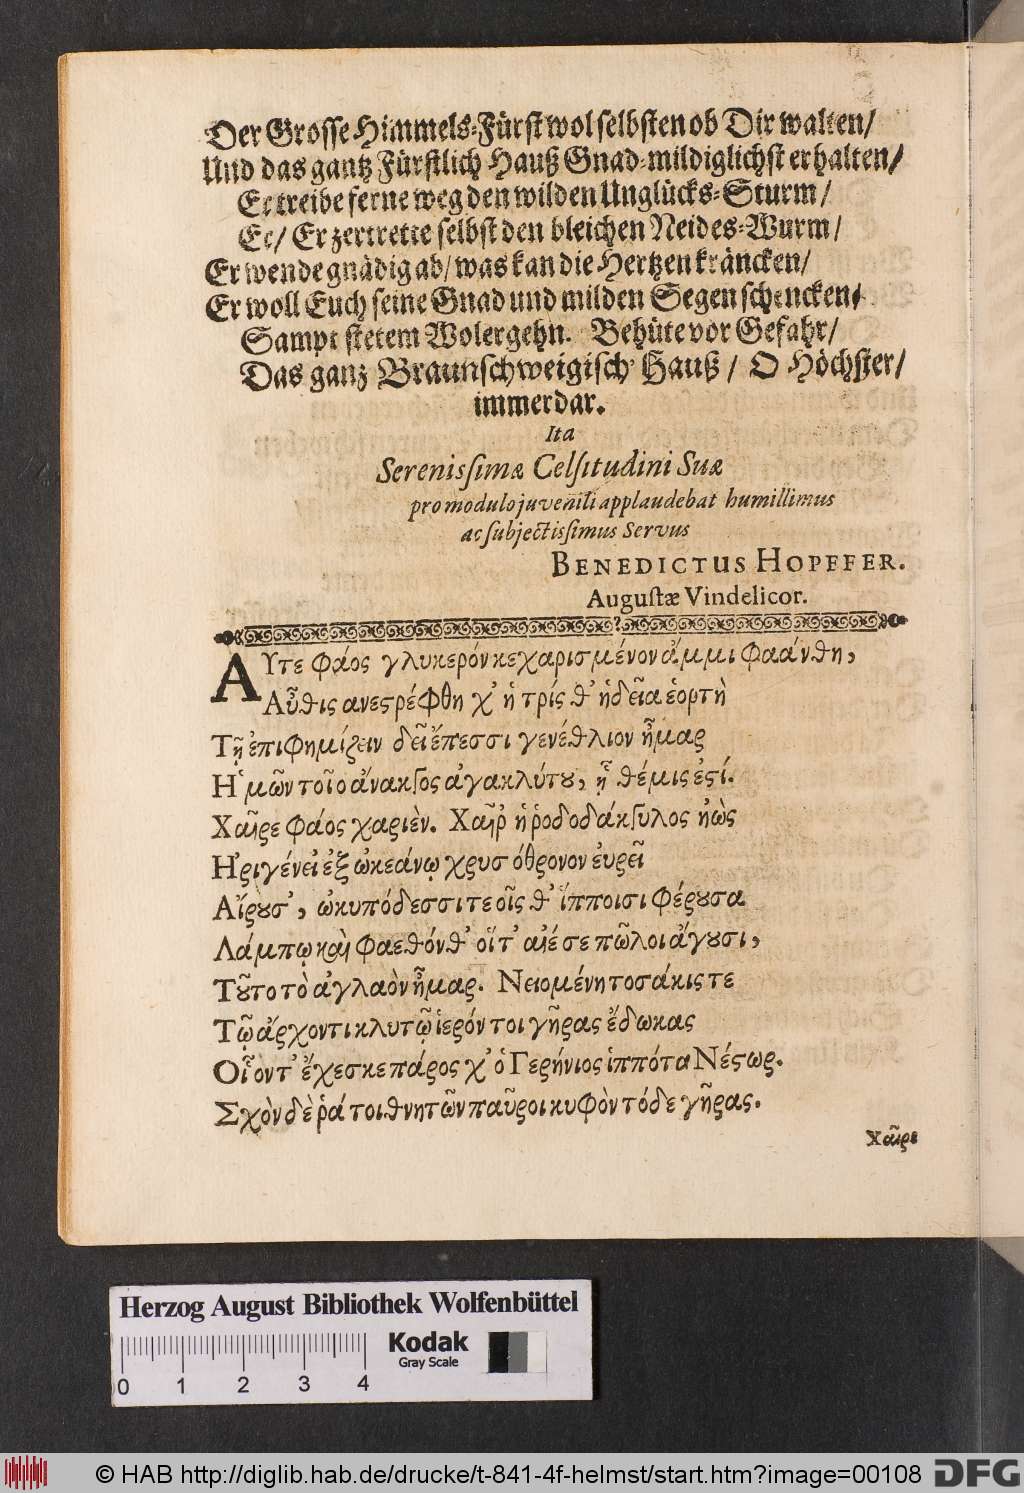 Der Grosse Himmels-Fürst wol selbsten ob Dir walten/
Und das gantz Fürstlich Hauß Gnad-mildiglichst erhalten/
Er treibe ferne weg den wilden Unglücks-Sturm/
Er/ Er zertrette selbst den bleichen Neides-Wurm/
Er wende gnädig ab/ was kan die Hertzen kräncken/
Er woll Euch seine Gnad und milden Segen schencken/
Sampt stetem Wolergehn. Behüte vor Gefahr/
Das ganz Braunschweigisch Hauß / O Höchster/
immerdar.
Ita
Serenissimæ Celsitudini Suæ
pro modulo juvenili applaudebat humillimus
ac subjectissimus Servus
BENEDICTUS HOPFFER.
Augustæ Vindelicor.
ΑΥτε φάος γλυκερόν κεχαρισμένον ἄμμι φαάνθη,
Αὖθις ανεςρέφθη χ' ἡ τρίς θ' ἡδεῖα ἑορτὴ
Τῇ ἐπιφημίζειν δεῖ ἔπεσσι γενέθλιον ἦμαρ
Ἡμῶν τοῖο ἄνακτος ἀγακλύτȣ, ᾗ θέμις ἐςί.
Χαῖρε φάος χαριὲν. Χαῖρ' ἡ ῥοδοδάκτυλος ἠὼς
Ἠριγένει' ἐξ ὠκεάνῳ χρυσόθρονον ἐυρεῖ
Αἴρȣσ', ὠκυπόδεσσι τε οἷς θ' ἵπποισι φέρȣσα
Λάμπῳ καὶ φαεθόνθ' οἵτ' αἰέ σε πῶλοι ἄγȣσι,
Τȣ͂το τὸ ἀγλαὸν ἦμαρ. Νειομένη τοσάκις τε
Τῷ ἄρχοντι κλυτῷ ἱερόν τοι γῆρας ἔδωκας
Οἷον τ' ἔχεσκε πάρος χ' ὁ Γερήνιος ἱππότα Νέςωρ.
Σχὸν δὲ ῥά τοι θνητῶν παῦροι κυφὸν τόδε γῆρας.
Χαῖρε
Herzog August Bibliothek Wolfenbüttel
Kodak
Gray Scale
0 1 2 3 4
© HAB http://diglib.hab.de/drucke/t-841-4f-helmst/start.htm?image=00108
DFG